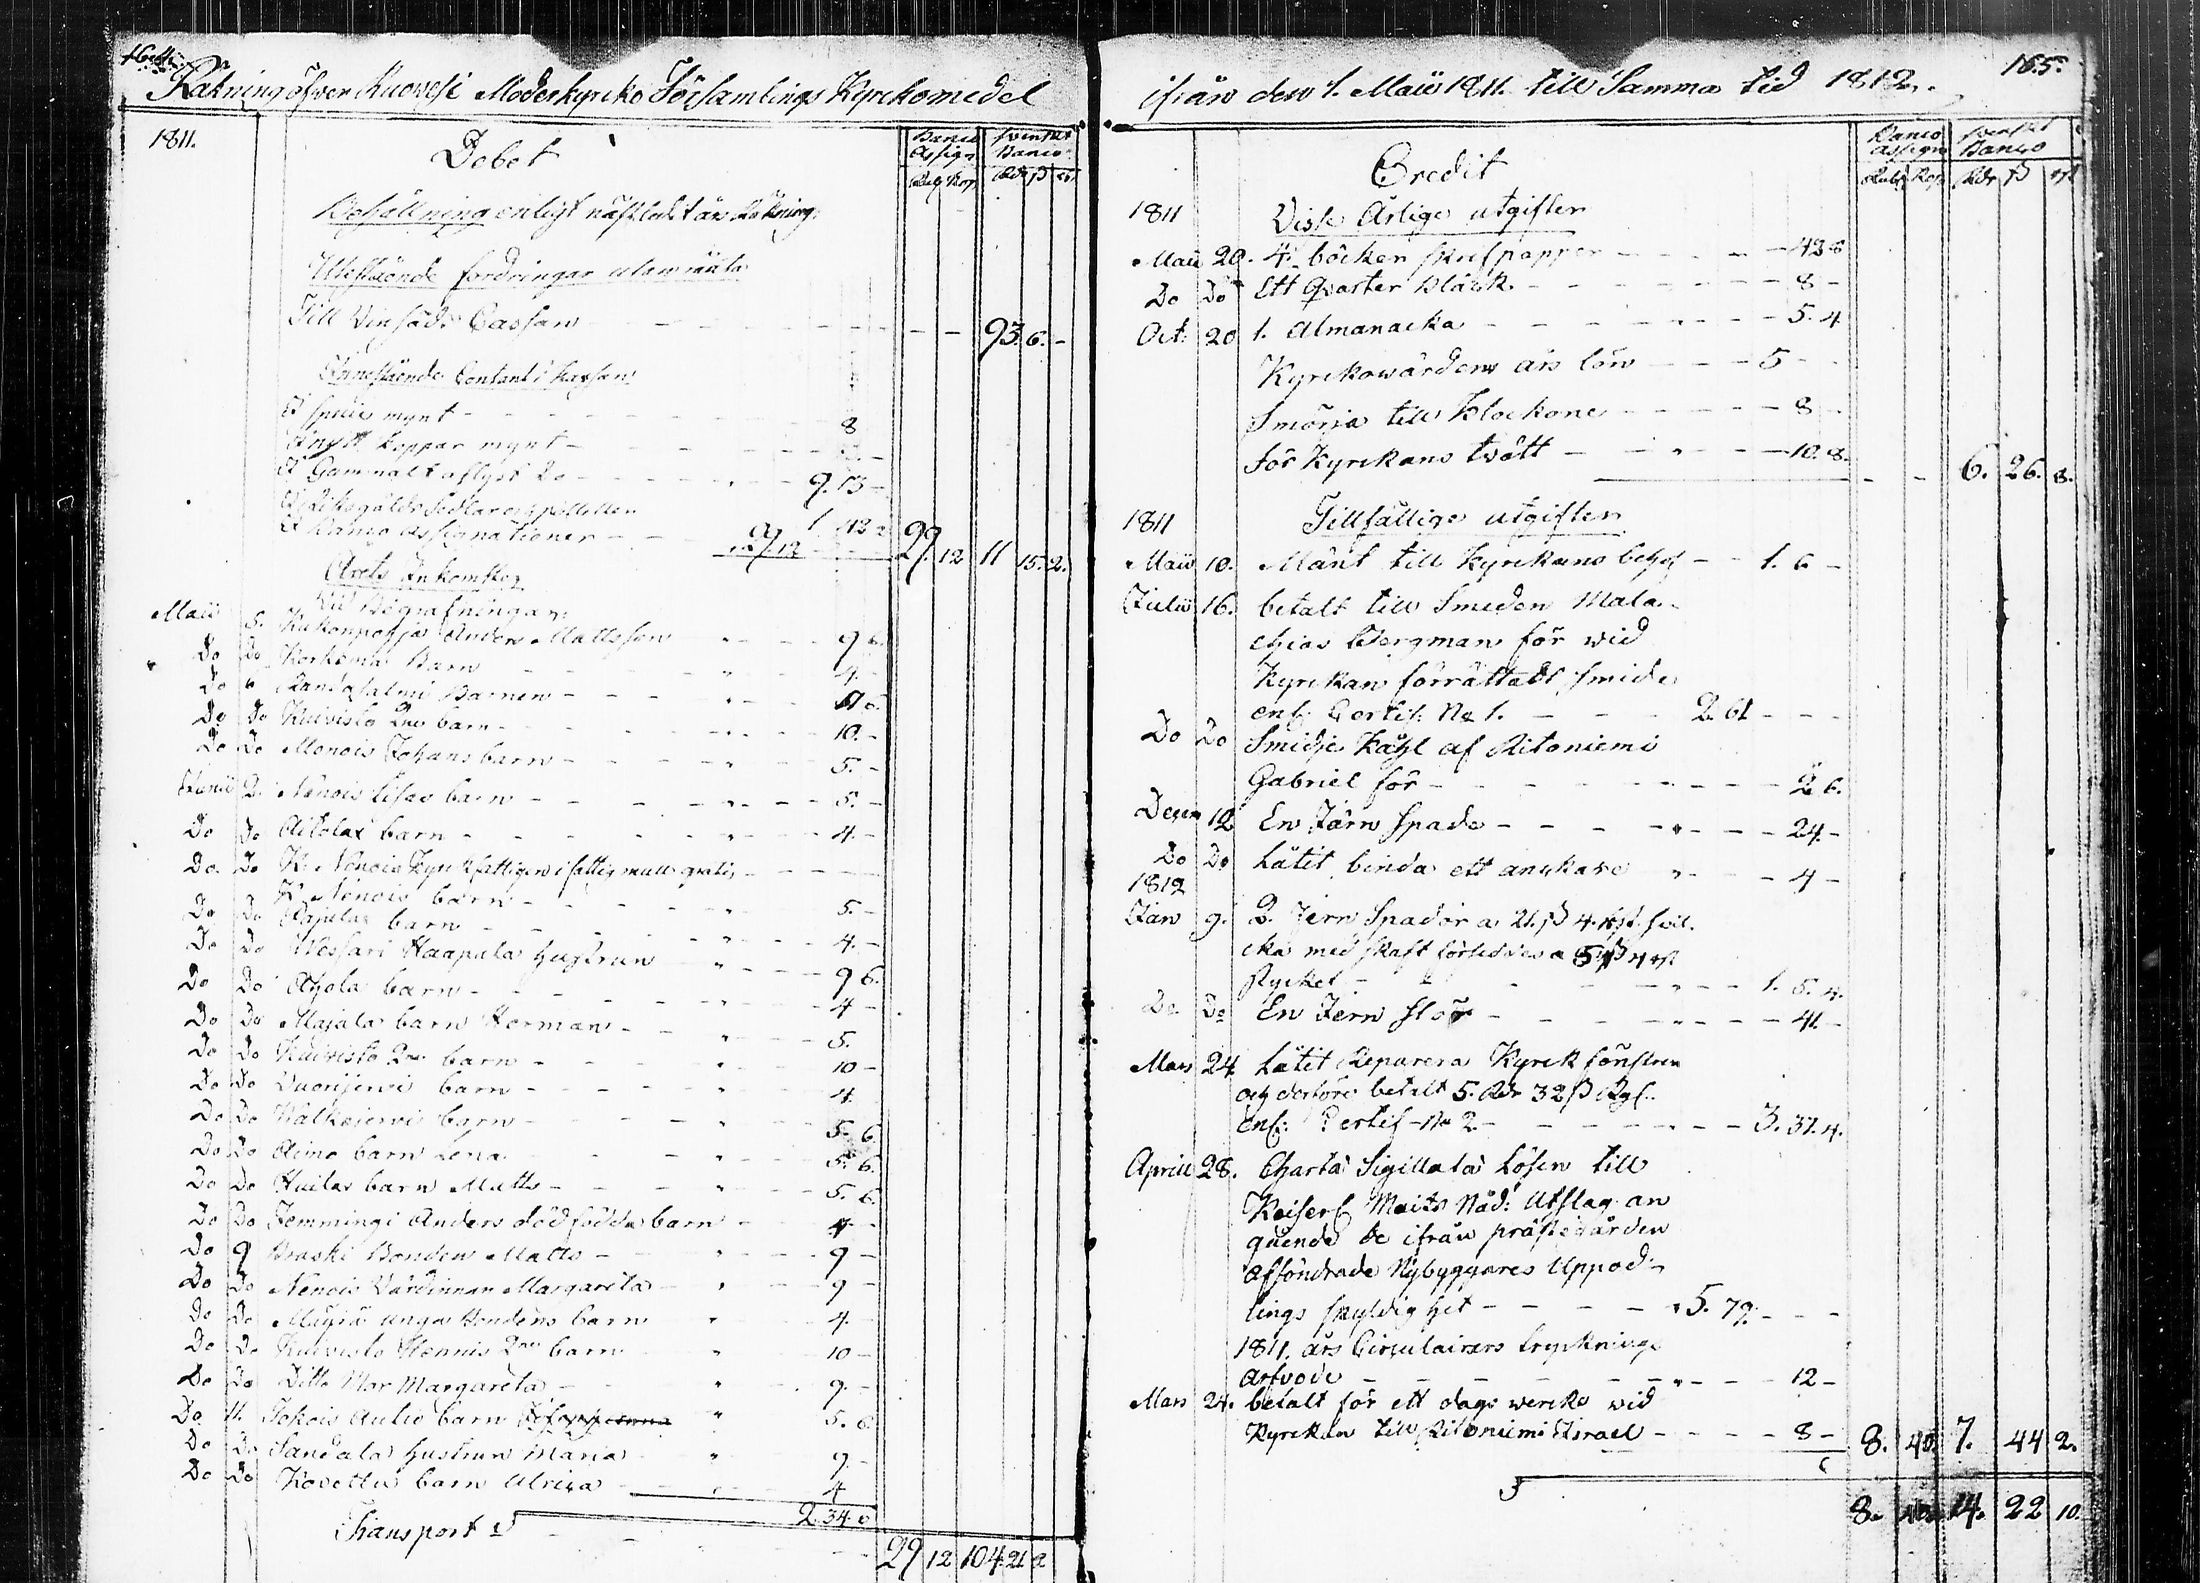 164.
Räkning öfver Ruovesi Moderkyrko Församlings Kyrkomedel
1811.
Debet
Banco Assign
Svenskt Banco
Rub Kop Rdr ß rst
Behållning enligt näst ledit års Räkning
Utestående fordringar utan ränta
Till Vinsäds Cassan - - - 93. 6. -
Innestående Contant i Kassan
I specie mynt - - - 8
koppar mynt - - -
I Gammalt aflyst Do - - - 9. 13 -
I Riksgälds Sedlar och polletter 1. 42 2
I Banco Assignationer - - 29. 12 - - 29. 12 11 15. 2.
Årets Inkomster
Vid Begrafningar
Maii 5. Anders Mattsson - - 9 6.
Do Do Korkema Barn - - 4. -
Do 6 Barnen - - - 6.
Do Do Kuivisto 2ne barn - - 10. -
Do Do Monois Johans barn - - 5. -
Junii 2. Nenois Lisas barn - - 5. -
Do Do Aitolax barn - - 4. -
Do. Do K. Nenois Kyrkfattigen i fattig mull gratis - - -
K. Nenois barn - - 5. -
Do Do Rajalax barn - - 4. -
Do Do Wessari Haapala hustrun - - 9 6.
Do Do Ahola barn - - 4 -
Do Do Majala barn Herman - - 5.
Do Do Kuivisto 2ne barn - - 10 -
Do Do Vuorijervi barn - - 4.
Do Do Kalkojervi barn - - 5. 6
Do Do Aimo barn Lena - - 5. 6.
Do Do Huilax barn Matts - - 5. 6.
Do Do Jemmingi Anders dödfödda barn - 4 -
Do 9 Braski Bonden Matts - - 9 -
Do Do Nenois Värdinnan Margareta - 9 -
Do Do Mäyrä unga Bondens barn 4.
Do Do Kuivisto Hennis 2ne barn 10 -
Do Do Ditto Mor Margareta - 9. -
Do 11. Jokois Aulio barn 5. 6
Do Do Sandala hustrun Maria 9. -
Do Do Kovettu barn Ulrica 4
2 34. 6
Transport 29 12 104. 21 2
165.
ifrån den 1. Maii 1811. till Samma tid 1812.
Banco assign
svenskt Banco
Rub Kop Rdr ß rst
Credit
1811 Visse Årlige utgifter
Maii 20. 4. böcker skrifpapper - - - 42 8
Do Do Ett Qvarter bläck - - - 8 -
Oct: 20 1. Almanacka - - - 5. 4
Kyrkowärdens års lön - - - 5 - -
Smörja till Klockone - - - 8 -
för Kyrkans twätt - - - 10. 8.
- - 6. 26. 8.
1811 Tillfällige utgifter
Maii 10. till Kyrkans behof - - 1. 6 -
Julii 16. betalt till Smeden Mala-
chias Bergman för wid
Kyrkan förrättadt smide
enl: Certif: No 1. - - - 2. 61 - - -
Do Do Smidje Kohl af Ritoniemi
Gabriel för - - - 2 6.
Decem 12 En Järn Spade - - - 24. -
Do Do Låtit binda ett ankare - - 4 -
1812
Jan 9. 2. Jern Spador a 21. ß 4. rst. hvil-
cka med skaft a 5 ß 4 rst
Stycket - - - 1. 5. 4.
Do. Do En Jern stör - - - 41. -
Mars 24 Låtit Reparera Kyrk fönstren
och derföre betalt 5. Rdr 32 ß Rgs.
enl: Certif No 2 - - - 3. 37. 4.
Aprill 28. Charta Sigillata Lösen till
Keiserl. Maits Nåd: Utslag an
gående de ifrån prästegården
afsöndrade Nybyggares Uppod-
lings skyldighet - - - 5. 79. - - -
1811. års Circulairers trycknings
arfvode - - - 12 -
Mars 24. betalt för ett dags wercke wid
Kyrckan till Ritoniemi Israel - - - 8 - 8. 40. 7. 44 2.
8. 40. 14. 22 10.